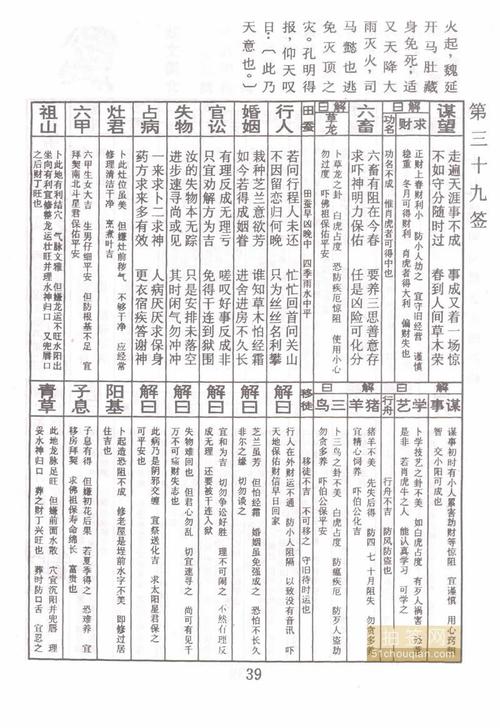 火起，魏延
开马肚藏
身免死，适
又天降大
雨灭火，司
马懿也逃
免灭顶之
灾。孔明得
报，仰天叹
曰：〔此乃
天意也。〕
第三十九签
谋望
走遍天涯事不成 事成又着一场惊
不如守分随时过 春到人间草木荣
求财
解曰
正财上春财利小 防小人劫之 宜守旧经营 谨慎
稳重 冬月可得财利 肖虎者得大利 偏财失也
功名
功名不成 惟肖虎者可得也
六畜
六畜有阻在今春 要养三思善意存
求吁神明力保佑 任是凶险可化分
解曰
草龙
卜草龙之卦 白虎占度 恐防疾厄惊阻 使用小心
防虎 吓佛祖保佑平安也
田蚕
田蚕早凶晚中 四季雨水中平
行人
若问行程人未还 忙忙回首问关山
不因留恋归何晚 只为丝丝名利攀
婚姻
栽种芝兰意欲芳 谁知草木怕经霜
如今若得成姻眷 进舍进房不久长
官讼
有理反成无理亏 嗟叹好事反成非
只宜劝解方为吉 免得干连到狱围
失物
汝的失物本无踪 只是安排未落空
进步速寻尚可见 其时闲气勿冲冲
占病
一来求卜二求神 人病厌厌求保身
药方求来多有效 更衣宿疾答谢神
灶君
卜此灶位虽美 但嫌灶前秽气 不够干净 应经常
修理清洁干净 烹煮叶吉
六甲
六甲生女大吉 生男仔细平安 但防根基不足 宜
拜契南北斗星君保佑平安也
祖山
卜此地有利结穴 气脉文雅 但嫌龙运不旺水阳出
坐向有利宜修整龙运壮旺并理水神归口 又兜唇口
之后财丁旺也
谋事
谋事初时有小人累害劫财等惊阻 宜谨慎 用心窍
智 交小阳可成也
学艺
解曰
卜学技艺之卦不美 如白虎占度 有歹人祸害 惹
是非 若肖虎牛之人 能认真学习 可学之
行舟
行舟不吉 防风防盗也
猪羊
解曰
猪羊不美 先失后得 防四七十月阻失 勿贪多养
宜饲精心养 吓伯公化吉
三鸟
卜三鸟之卦不美 白虎占度 防瘟疾厄 防歹人盗劫
勿贪多养 吓伯公保佑平安也
移徒
移徒不吉 不可移之 守旧待时运也
解曰
行人在外财运不通 防小人阻隔 以致没有音讯 吓
天地保佑财信早日回家
解曰
芝兰虽芳 但怕经霜 婚姻虽免强成之 恐怕不长久
非尔之缘 切勿谈之
解曰
宜和为吉 切勿争讼好胜 理不可闹之 不然有理反
成无理 还要被干连入狱
解曰
失物难回也 但君心勿乱 切宜速寻之 尚可有见千
万不可痛财失志也
解曰
此病乃是阴邪交缠 宜祭送化吉 求太阳星君保之
可平安也
阳基
卜起造恐阻不成 修老屋是埕前水字不美 即修过居
住吉也
子息
子息有得 但嫌初花后果 若夏季得之 恐难养 宜
移房拜契 求佛祖保寿命绵长 富贵也
青草
此地龙脉延旺 但嫌前面水散 穴宜沉并兜唇 理
妥水神归口 葬之财丁兴旺也 葬时防口舌 宜忍之
39
51chouqian.com